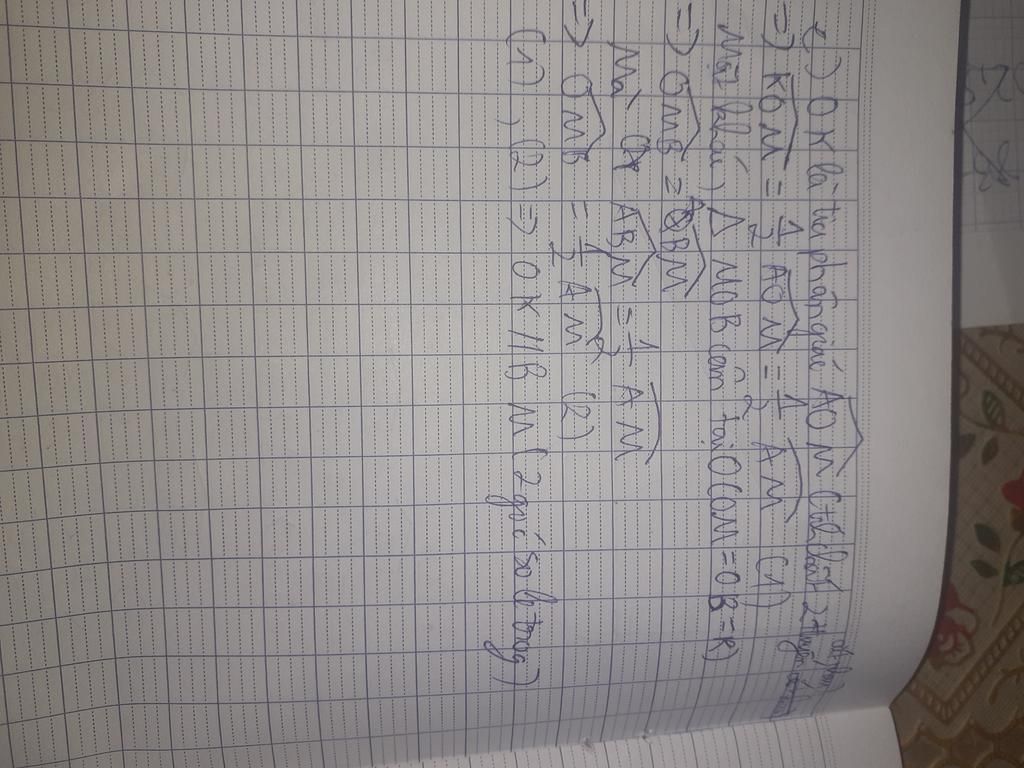 c) OK là tia phân giác AOM (t/c 2 t.tuyến cắt nhau)
=> KOM = 1/2 AOM = 1/2 AM (1)
Mặt khác, Δ MOB cân tại O (OM = OB = R)
=> OMB = OBM
Mà ABM = 1/2 AM
=> OMB = 1/2 AM (2)
(1), (2) => OK // BM (2 góc so le trong)